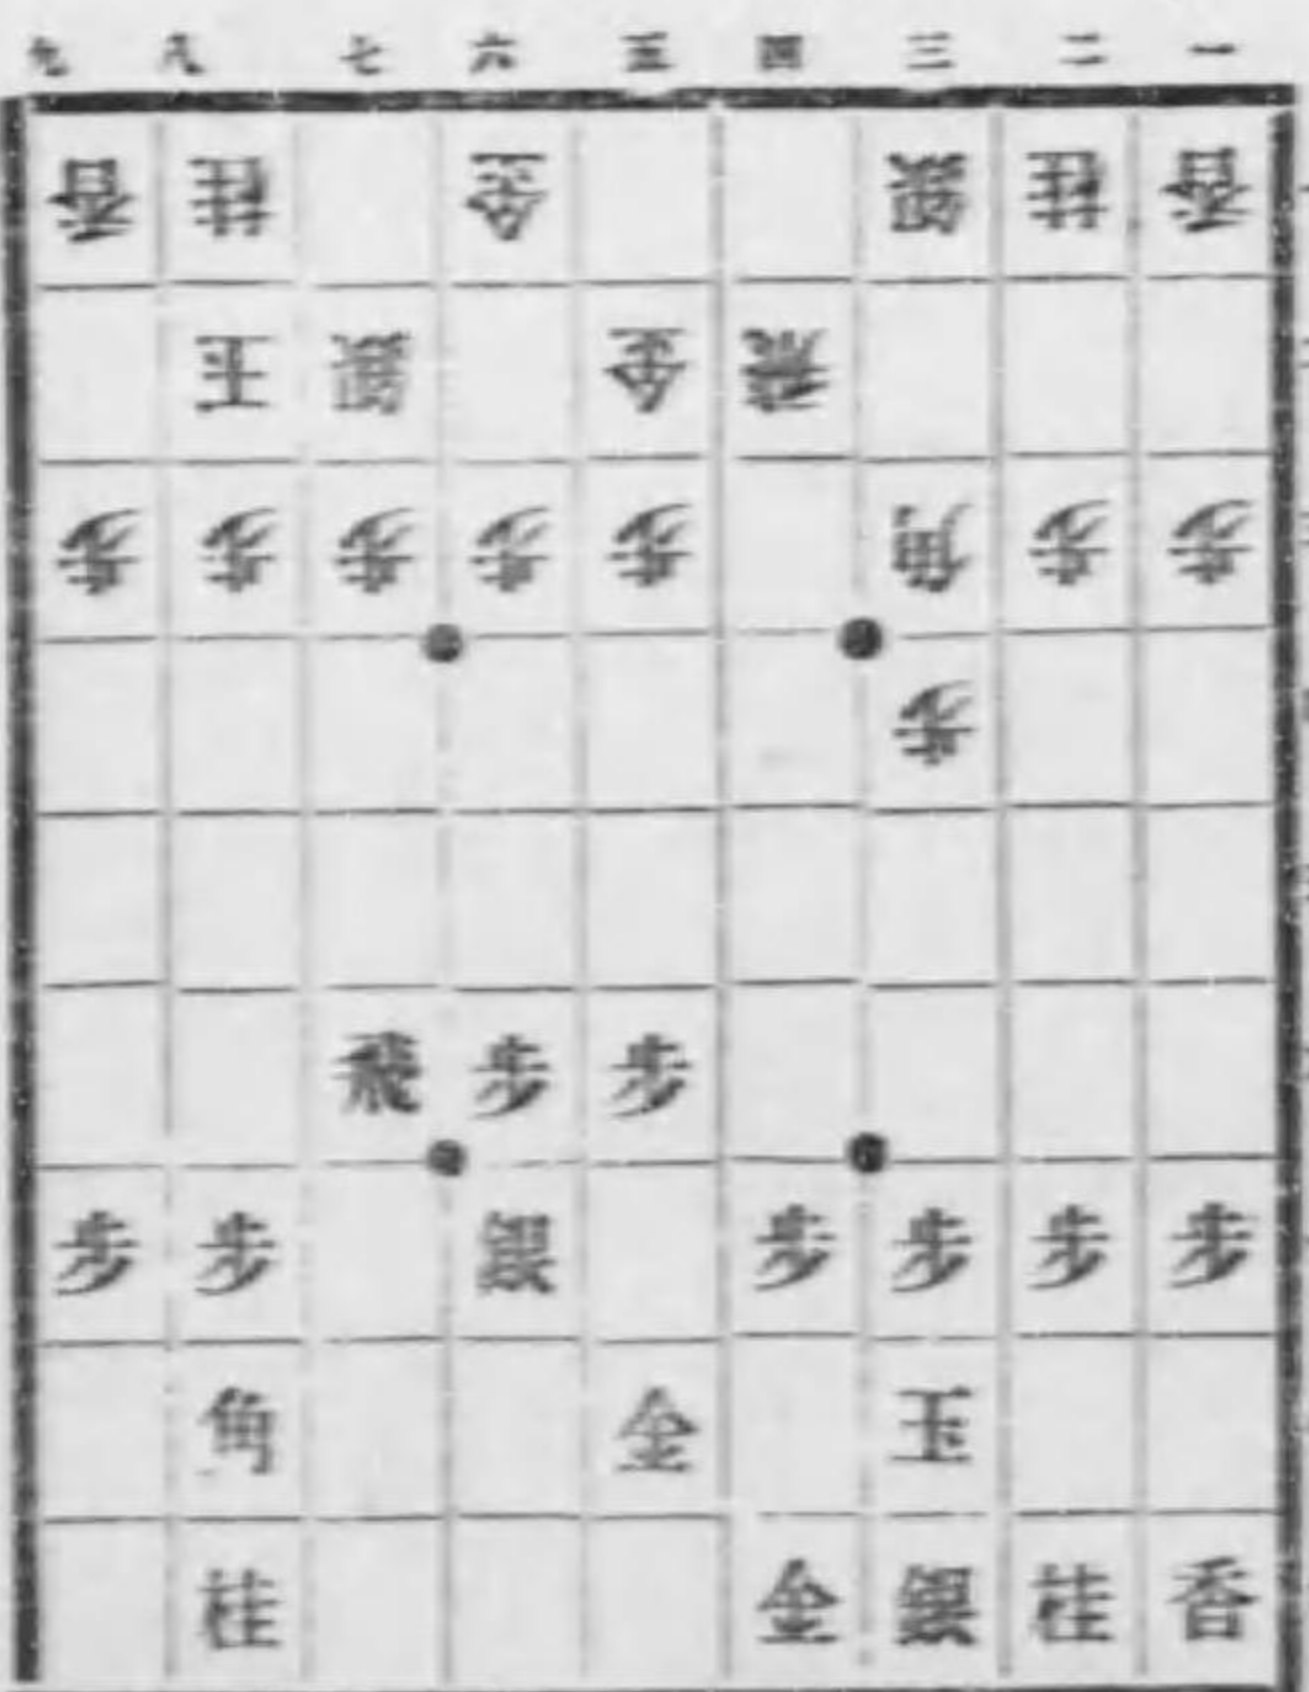 九 八 七 六 五 四 三 二 一
香 桂 金 銀 桂 香
王 銀 金 飛
歩 歩 歩 歩 歩 角 歩 歩
歩
飛 歩 歩
歩 歩 銀 歩 歩 歩 歩
角 金 玉
桂 金 銀 桂 香